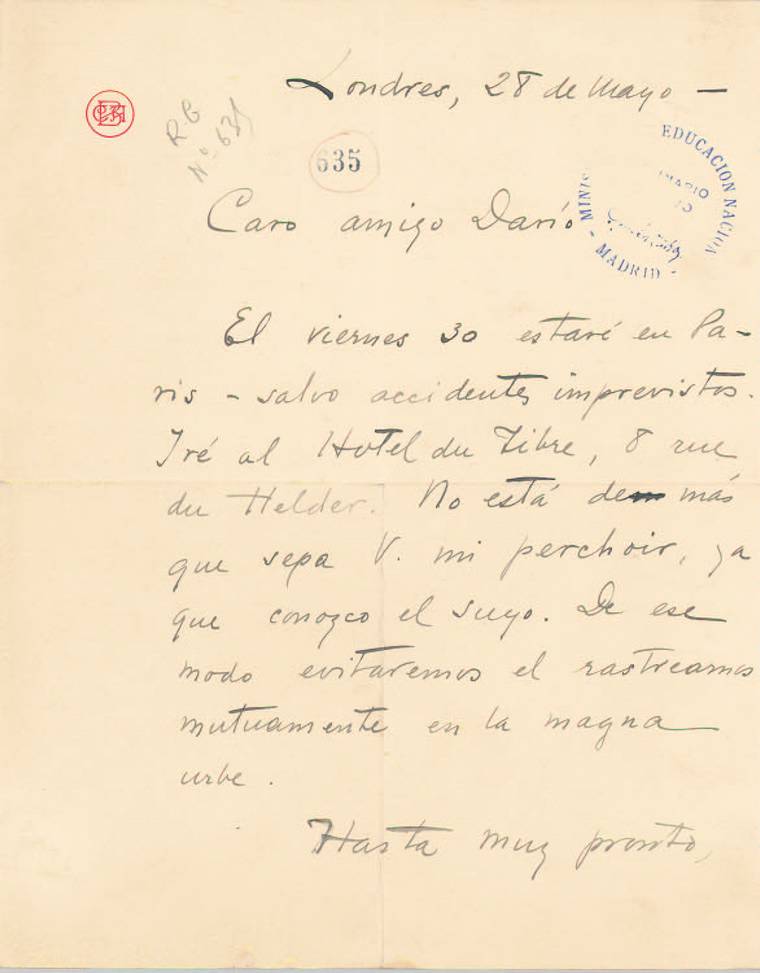 Londres, 28 de Mayo —
RG
Nº 631
635
EDUCACION NACION
MINIS
- MADRID -
Caro amigo Darío
El viernes 30 estaré en Pa-
ris - salvo accidentes imprevistos.
Iré al Hotel du Tibre, 8 rue
du Helder. No está de más
que sepa V. mi perchoir, ya
que conozco el suyo. De ese
modo evitaremos el rastrearnos
mutuamente en la magna
urbe.
Hasta muy pronto,